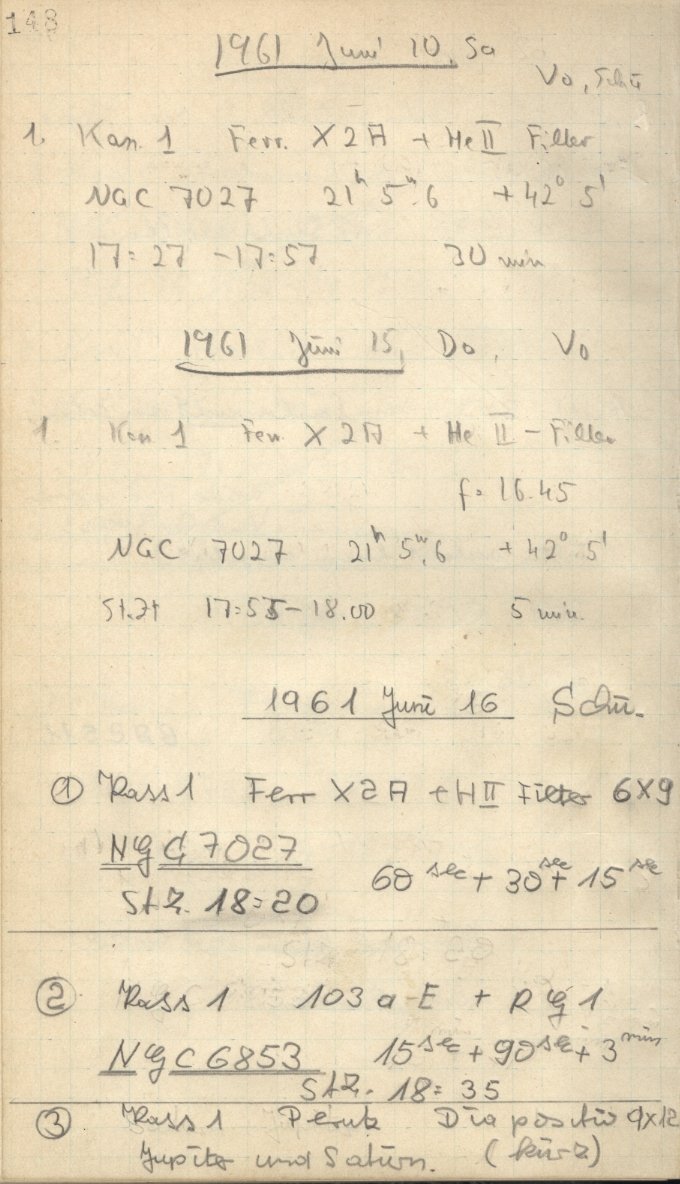 148
1961 Juni 10, Sa
Vo, Schü
1. Kas. 1 Ferr. X2A + He II Filter
NGC 7027 21h 5m.6 +42° 5'
17:27 - 17:57 30 min
1961 Juni 15, Do, Vo
1. Kas 1 Ferr. X2A + He II - Filter
f = 16.45
NGC 7027 21h 5m.6 +42° 5'
St.Zt 17:55 - 18.00 5 min.
1961 Juni 16 Schü.
① Kass 1 Ferr X2A + H II Filter 6X9
NGC 7027
60 sec + 30 sec + 15 sec
StZ. 18:20
② Kass 1 103 a-E + RG1
NGC 6853 15 sec + 90 sec + 3 min
StZ. 18:35
③ Kass 1 Perutz Diapositiv 9x12
Jupiter und Saturn. (kurz)